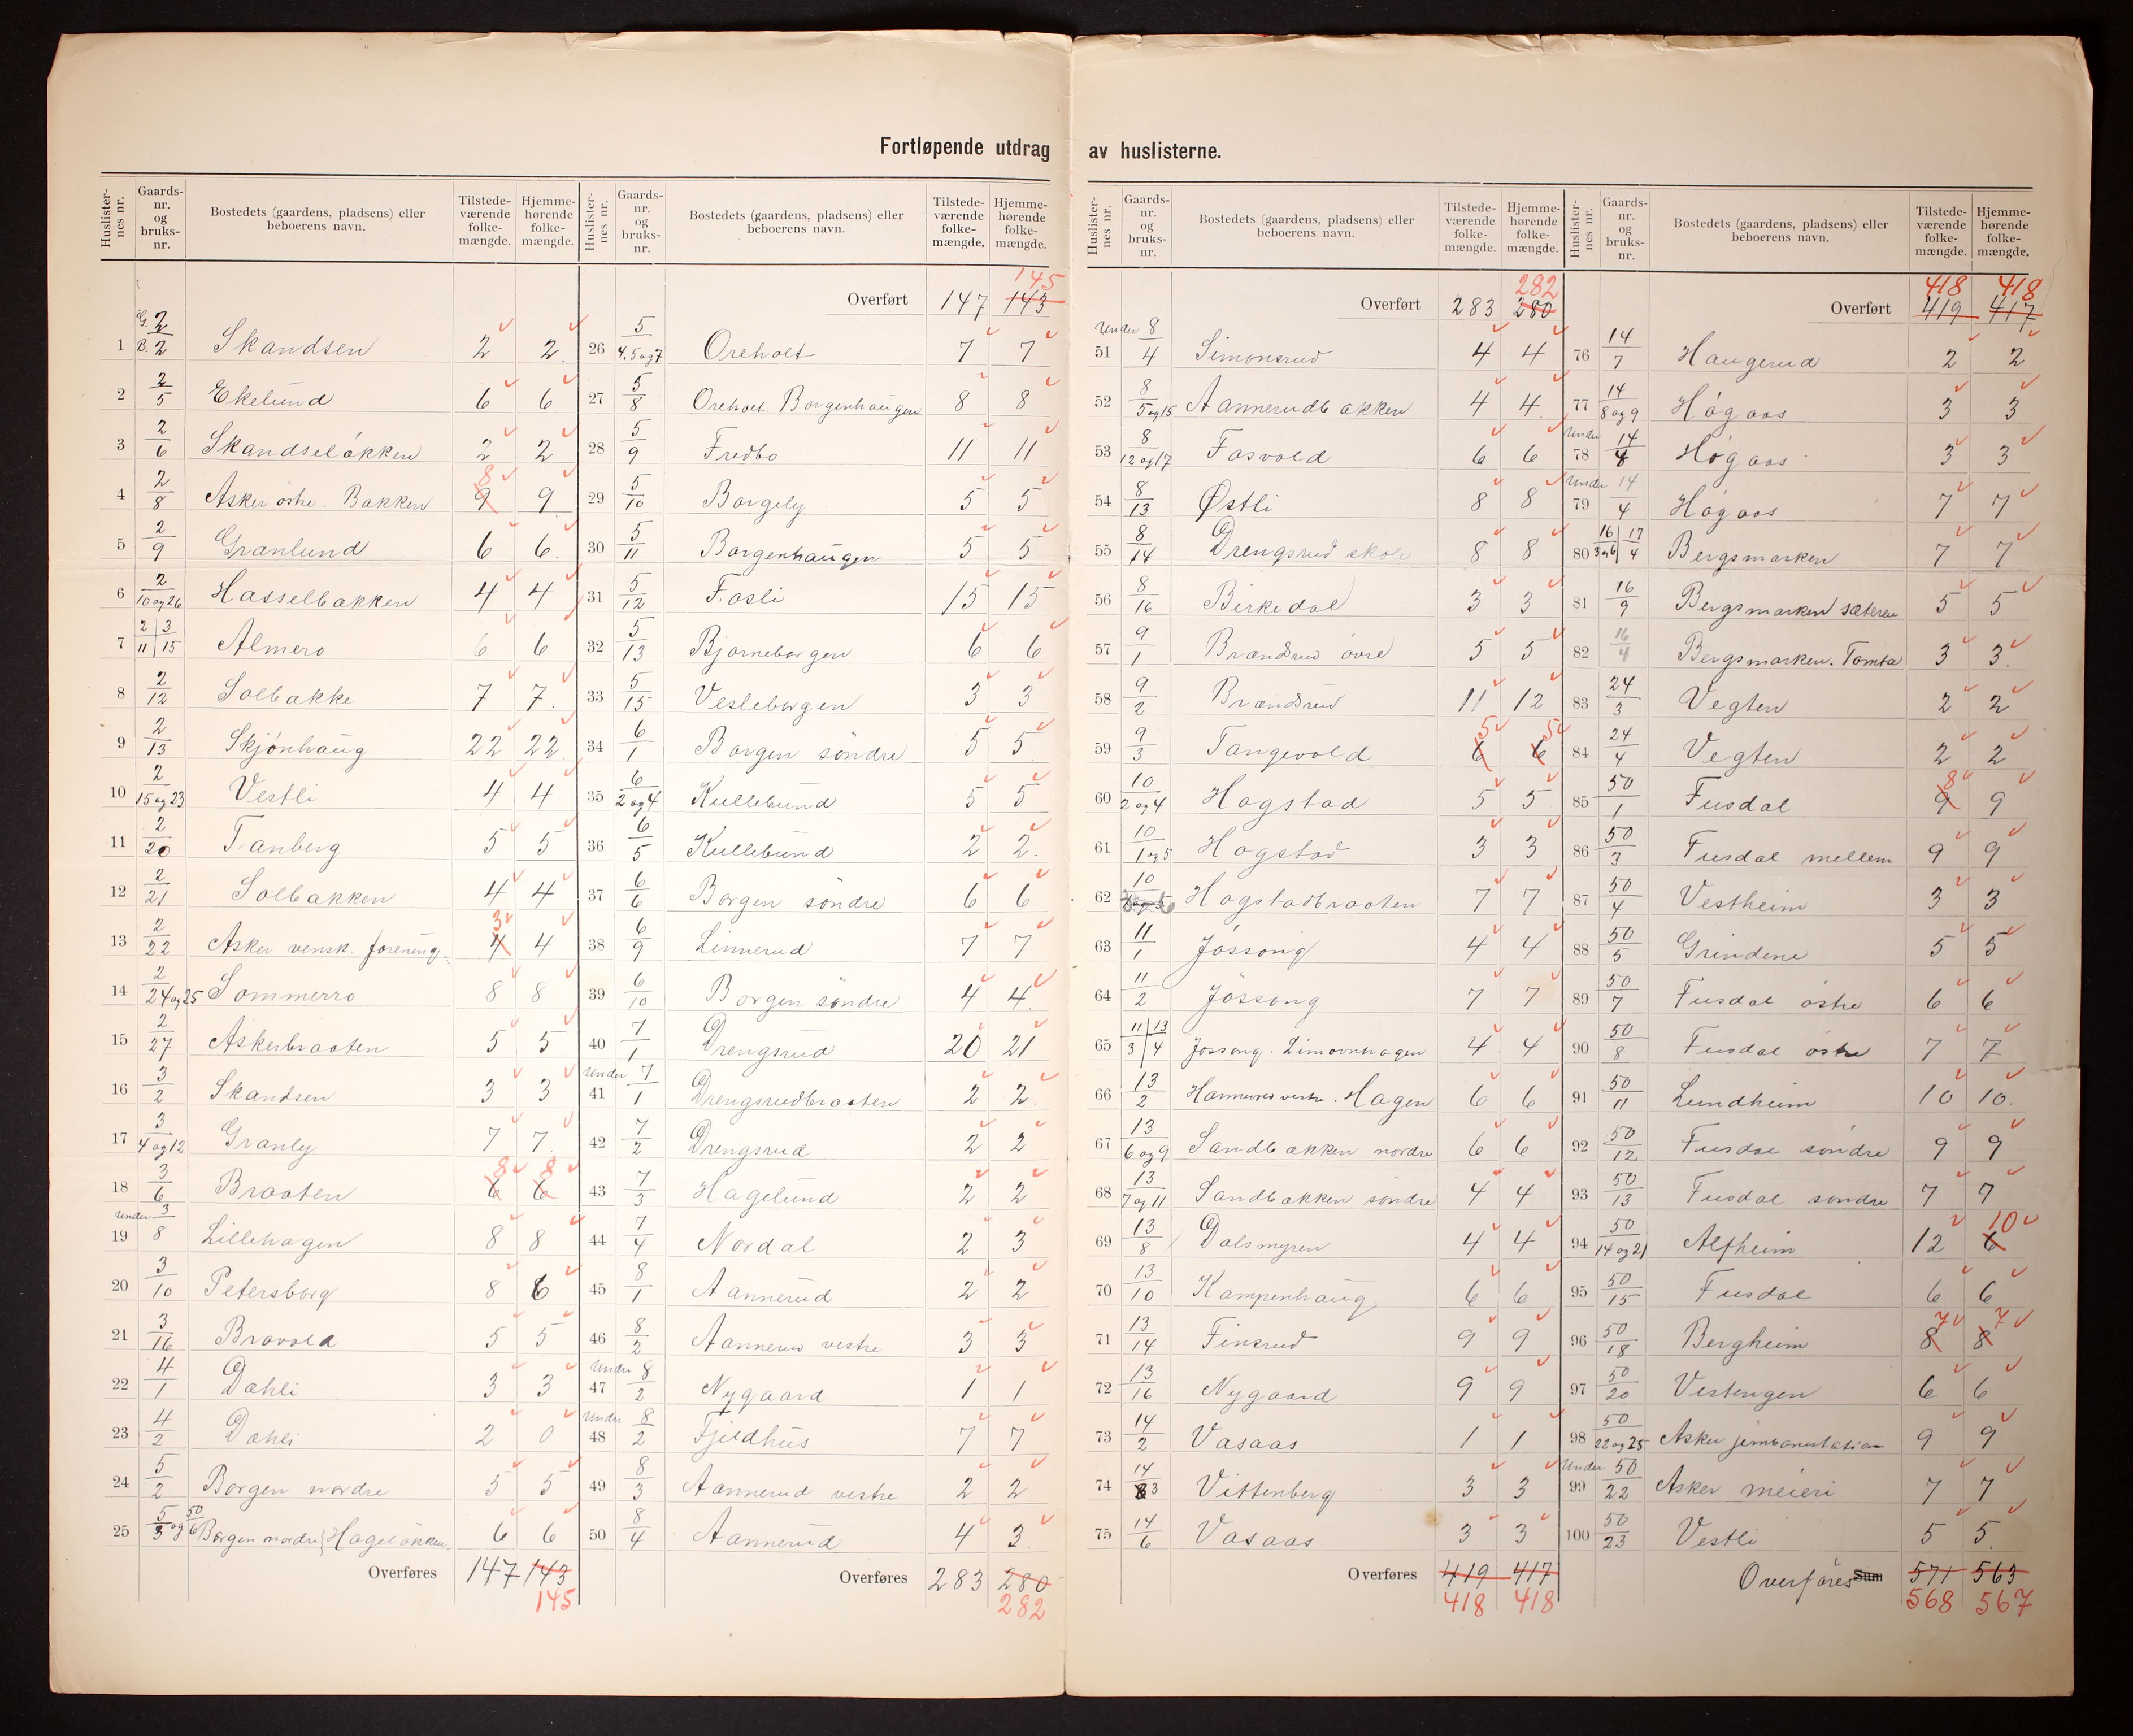 Fortløpende utdrag av huslisterne.
Huslisternes nr. | Gaards-nr. og bruks-nr. | Bostedets (gaardens, pladsens) eller beboerens navn. | Tilstedeværende folkemængde. | Hjemmehørende folkemængde.
1 | G. 2 / B. 2 | Skandsen | 2 | 2
2 | 2/5 | Ekelund | 6 | 6
3 | 2/6 | Skandseløkken | 2 | 2
4 | 2/8 | Asker østre. Bakken | 9 8 | 9
5 | 2/9 | Granlund | 6 | 6
6 | 2/10 og 26 | Hasselbakken | 4 | 4
7 | 2/11 3/15 | Almero | 6 | 6
8 | 2/12 | Solbakke | 7 | 7
9 | 2/13 | Skjønhaug | 22 | 22
10 | 2/15 og 23 | Vestli | 4 | 4
11 | 2/20 | Tanberg | 5 | 5
12 | 2/21 | Solbakken | 4 | 4
13 | 2/22 | Asker vensk. forening | 4 3 | 4
14 | 2/24 og 25 | Sommerro | 8 | 8
15 | 2/27 | Askerbraaten | 5 | 5
16 | 3/2 | Skandsen | 3 | 3
17 | 3/4 og 12 | Granly | 7 | 7
18 | 3/6 | Braaten | 6 8 | 6 8
19 | Under 3/8 | Lillehagen | 8 | 8
20 | 3/10 | Petersborg | 8 | 6
21 | 3/16 | Bravold | 5 | 5
22 | 4/1 | Dahli | 3 | 3
23 | 4/2 | Dahli | 2 | 0
24 | 5/2 | Borgen nordre | 5 | 5
25 | 5/3 og 50/6 | Borgen nordre, Hageløkken | 6 | 6
Overføres 147 143 145
Huslisternes nr. | Gaards-nr. og bruks-nr. | Bostedets (gaardens, pladsens) eller beboerens navn. | Tilstedeværende folkemængde. | Hjemmehørende folkemængde.
Overført 147 143 145
26 | 5/4.5 og 7 | Oreholt | 7 | 7
27 | 5/8 | Oreholt. Borgenhaugen | 8 | 8
28 | 5/9 | Fredbo | 11 | 11
29 | 5/10 | Borgely | 5 | 5
30 | 5/11 | Borgenhaugen | 5 | 5
31 | 5/12 | Fosli | 15 | 15
32 | 5/13 | Bjørneborgen | 6 | 6
33 | 5/15 | Vesleborgen | 3 | 3
34 | 6/1 | Borgen söndre | 5 | 5
35 | 6/2 og 4 | Kullebund | 5 | 5
36 | 6/5 | Kullebund | 2 | 2
37 | 6/6 | Borgen söndre | 6 | 6
38 | 6/9 | Linnerud | 7 | 7
39 | 6/10 | Borgen söndre | 4 | 4
40 | 7/1 | Drengsrud | 20 | 21
41 | Under 7/1 | Drengsrudbraaten | 2 | 2
42 | 7/2 | Drengsrud | 2 | 2
43 | 7/3 | Hagelund | 2 | 2
44 | 7/4 | Nordal | 2 | 3
45 | 8/1 | Aannerud | 2 | 2
46 | 8/2 | Aannerud vestre | 3 | 3
47 | Under 8/2 | Nygaard | 1 | 1
48 | Under 8/2 | Fjeldhus | 7 | 7
49 | 8/3 | Aannerud vestre | 2 | 2
50 | 8/4 | Aannerud | 4 | 3
Overføres 283 280 282
Huslisternes nr. | Gaards-nr. og bruks-nr. | Bostedets (gaardens, pladsens) eller beboerens navn. | Tilstedeværende folkemængde. | Hjemmehørende folkemængde.
Overført 283 280 282
51 | Under 8/4 | Simonsrud | 4 | 4
52 | 8/5 og 15 | Aannerudbakken | 4 | 4
53 | 8/12 og 17 | Fosvold | 6 | 6
54 | 8/13 | Østli | 8 | 8
55 | 8/14 | Drengsrud skole | 8 | 8
56 | 8/16 | Birkedal | 3 | 3
57 | 9/1 | Brændsrud övre | 5 | 5
58 | 9/2 | Brændsrud | 11 | 12
59 | 9/3 | Tangevold | 6 5 | 6 5
60 | 10/2 og 4 | Hogstad | 5 | 5
61 | 10/1 og 5 | Hogstad | 3 | 3
62 | 10 | Hogstadbraaten | 7 | 7
63 | 11/1 | Jössong | 4 | 4
64 | 11/2 | Jössong | 7 | 7
65 | 11/3 13/4 | Jössong. Limovnhagen | 4 | 4
66 | 13/2 | vestre. Hagen | 6 | 6
67 | 13/6 og 9 | Sandbakken nordre | 6 | 6
68 | 13/7 og 11 | Sandbakken söndre | 4 | 4
69 | 13/8 | Dalsmyren | 4 | 4
70 | 13/10 | Kampenhaug | 6 | 6
71 | 13/14 | Finsrud | 9 | 9
72 | 13/16 | Nygaard | 9 | 9
73 | 14/2 | Vasaas | 1 | 1
74 | 14/3 | Vittenberg | 3 | 3
75 | 14/6 | Vasaas | 3 | 3
Overføres 419 417 418 418
Huslisternes nr. | Gaards-nr. og bruks-nr. | Bostedets (gaardens, pladsens) eller beboerens navn. | Tilstedeværende folkemængde. | Hjemmehørende folkemængde.
Overført 419 417 418 418
76 | 14/7 | Haugerud | 2 | 2
77 | 14/8 og 9 | Högaas | 3 | 3
78 | Under 14/8 | Högaas | 3 | 3
79 | Under 14/4 | Högaas | 7 | 7
80 | 16/3 og 6 17/4 | Bergsmarken | 7 | 7
81 | 16/9 | Bergsmarken sæteren | 5 | 5
82 | 16/4 | Bergsmarken. Tomta | 3 | 3
83 | 24/3 | Vegten | 2 | 2
84 | 24/4 | Vegten | 2 | 2
85 | 50/1 | Fusdal | 9 8 | 9
86 | 50/3 | Fusdal mellem | 9 | 9
87 | 50/4 | Vestheim | 3 | 3
88 | 50/5 | Grindene | 5 | 5
89 | 50/7 | Fusdal östre | 6 | 6
90 | 50/8 | Fusdal östre | 7 | 7
91 | 50/11 | Lundheim | 10 | 10
92 | 50/12 | Fusdal söndre | 9 | 9
93 | 50/13 | Fusdal søndre | 7 | 7
94 | 50/14 og 21 | Alfheim | 12 | 6 10
95 | 50/15 | Fusdal | 6 | 6
96 | 50/18 | Bergheim | 8 7 | 8 7
97 | 50/20 | Vestengen | 6 | 6
98 | 50/22 og 25 | Asker jernbanestation | 9 | 9
99 | Under 50/22 | Asker meieri | 7 | 7
100 | 50/23 | Vestli | 5 | 5
Overføres Sum 571 563 568 567